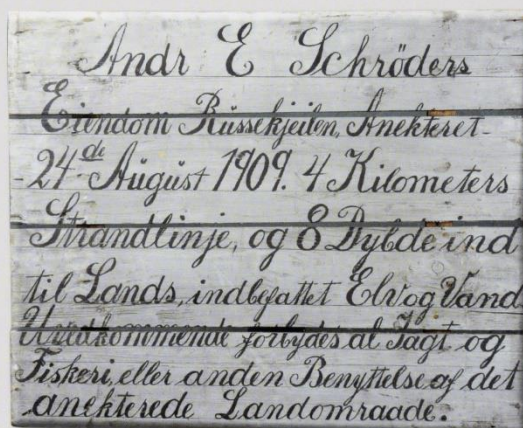 Andr E Schröders
Eiendom Rüssekjeilen, Anekteret
24de Aügüst 1909. 4 Kilometers
Strandlinje, og 8 Dybde ind
til Lands, indbefattet Elv og Vand
Uvedkommende forbydes al Jagt og
Fiskeri, eller anden Benyttelse af det
anekterede Landomraade.